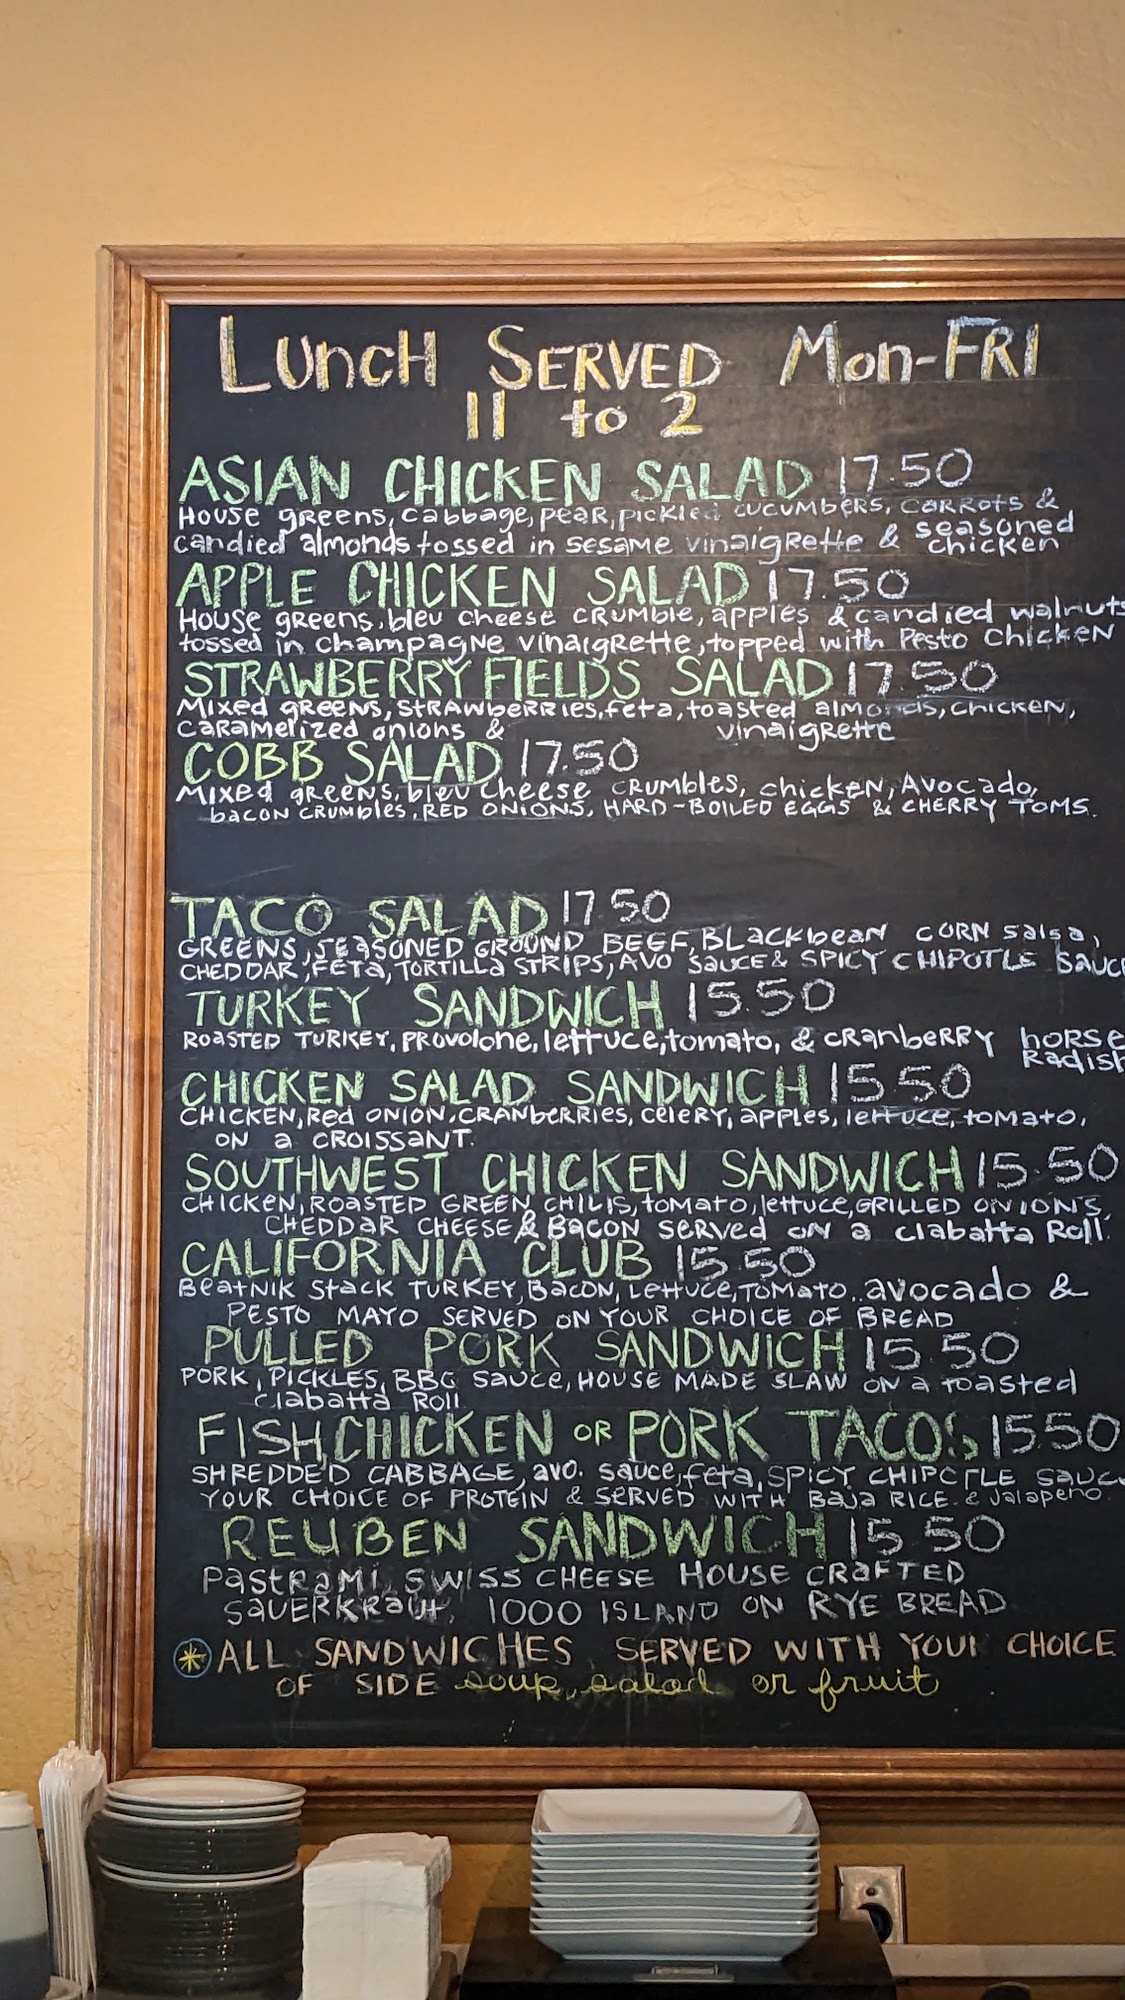 Lunch Served Mon-Fri
11 to 2
ASIAN CHICKEN SALAD 17.50
House greens, cabbage, pear, pickled cucumbers, carrots &
candied almonds tossed in sesame vinaigrette & seasoned
chicken
APPLE CHICKEN SALAD 17.50
House greens, bleu cheese crumble, apples & candied walnuts
tossed in champagne vinaigrette, topped with Pesto chicken
STRAWBERRY FIELDS SALAD 17.50
Mixed greens, strawberries, feta, toasted almonds, chicken,
caramelized onions & vinaigrette
COBB SALAD 17.50
Mixed greens, bleu cheese crumbles, chicken, Avocado,
bacon crumbles, RED ONIONS, HARD-BOILED EGGS & CHERRY TOMS.
TACO SALAD 17.50
GREENS, SEASONED GROUND BEEF, BLackbean CORN salsa,
CHEDDAR, FETA, TORTILLA STRIPS, AVO SAUCE & SPICY CHIPOTLE SAUC
TURKEY SANDWICH 15.50
ROASTED TURKEY, PROVOLONE, lettuce, tomato, & CRANBERRY HORSE
Radish
CHICKEN SALAD SANDWICH 15.50
CHICKEN, Red ONION, CRANBERRIES, celery, apples, lettuce, tomato,
ON a CROISSANT.
SOUTHWEST CHICKEN SANDWICH 15.50
CHICKEN, ROASTED GREEN CHILIS, tomato, lettuce, GRILLED ONIONS,
CHEDDAR CHEESE & BACON SERVED ON a ciabatta Roll.
CALIFORNIA CLUB 15.50
Beatnik Stack TURKEY, BACON, Lettuce, TOMATO, avocado &
PESTO MAYO SERVED ON YOUR CHOICE OF BREAD
PULLED PORK SANDWICH 15.50
PORK, PICKLES, BBQ sauce, HOUSE MADE SLAW ON a toasted
Ciabatta Roll
FISH, CHICKEN OR PORK TACOS 15.50
SHREDDED CABBAGE, avo. sauce, feta, SPICY CHIPOTLE SAUC
YOUR CHOICE OF PROTEIN & SERVED WITH BAJA RICE & Jalapeño.
REUBEN SANDWICH 15.50
PASTRAMI, SWISS CHEESE HOUSE CRAFTED
SAUERKRAUT, 1000 ISLAND ON RYE BREAD
*ALL SANDWICHES SERVED WITH YOUR CHOICE
OF SIDE soup, salad or fruit